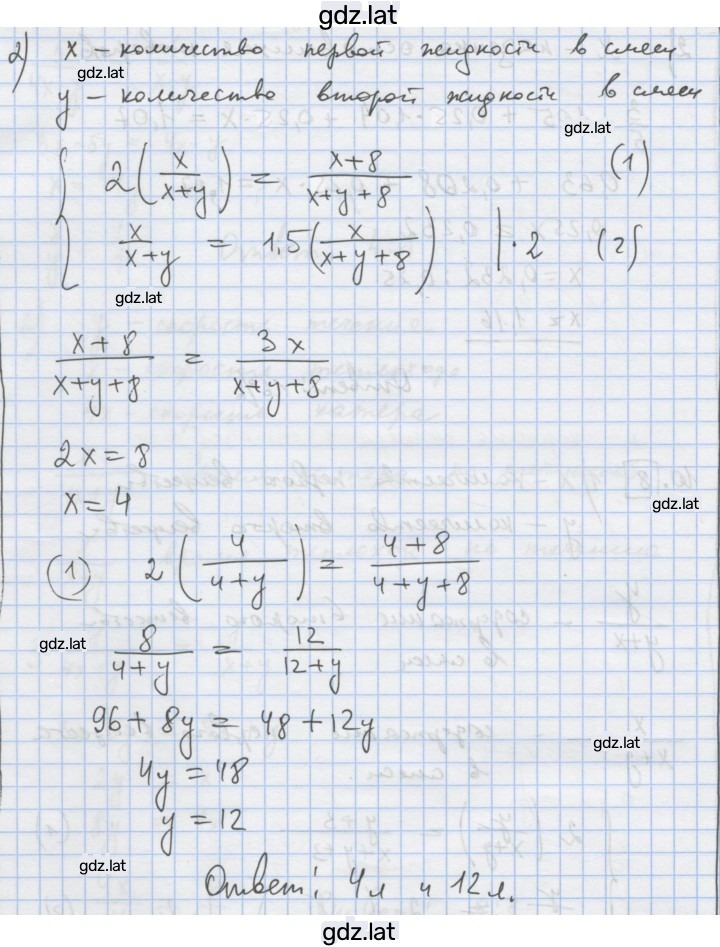 gdz.lat
2) x – количество первой жидкости в смеси
gdz.lat
y – количество второй жидкости в смеси
gdz.lat
{ 2(x/(x+y)) = (x+8)/(x+y+8) (1)
x/(x+y) = 1,5(x/(x+y+8)) |·2 (2)
gdz.lat
(x+8)/(x+y+8) = 3x/(x+y+8)
2x = 8
x = 4
gdz.lat
(1) 2(4/(4+y)) = (4+8)/(4+y+8)
gdz.lat
8/(4+y) = 12/(12+y)
96 + 8y = 48 + 12y
gdz.lat
4y = 48
y = 12
gdz.lat
Ответ: 4л и 12л.
gdz.lat